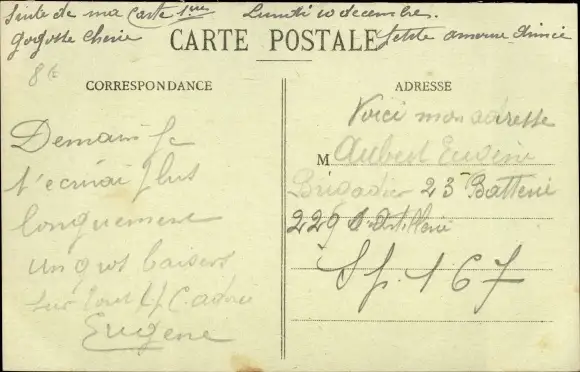 Suite de ma Carte 1ère Lundi 10 décembre.
gogosse Cherie
CARTE POSTALE
petite amour chérie
8€
CORRESPONDANCE
Demain je
t'ecrirai plus
longuement
un gros baisers
sur tout
Eugene
ADRESSE
Voici mon adresse
M Aubert Eugène
Brigadier 23e Batterie
229 d'Artillerie
Sp. 167